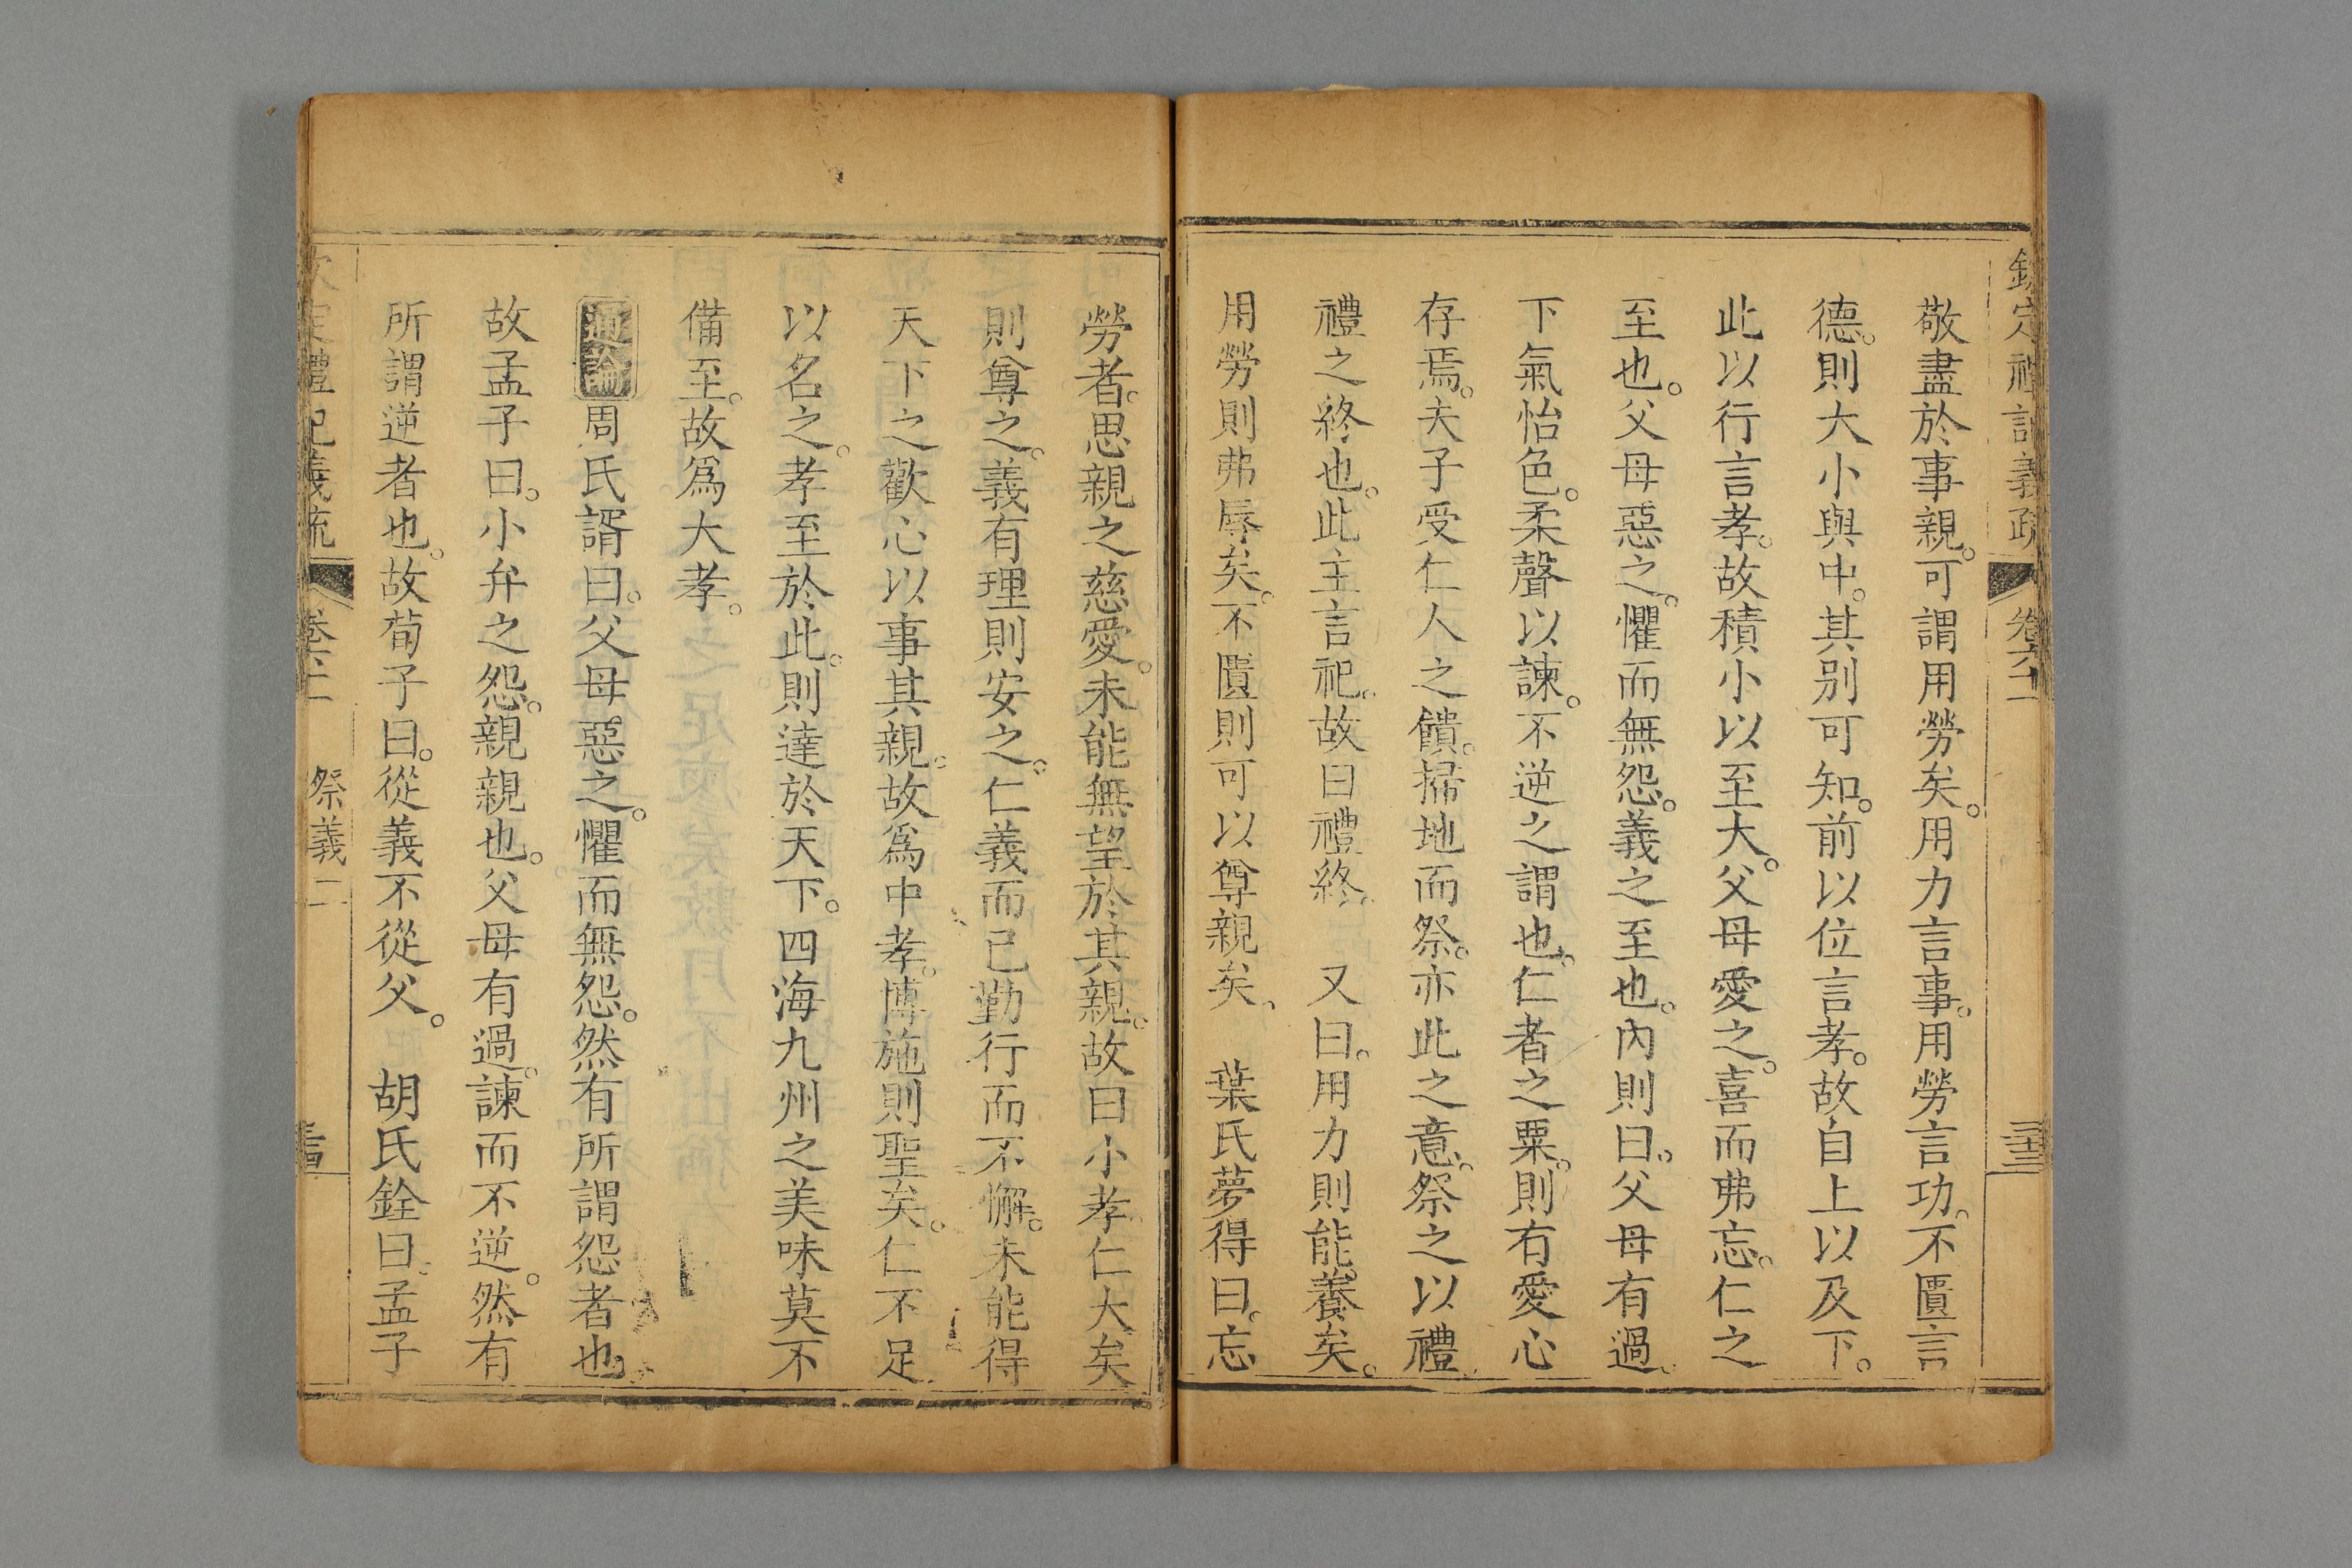 欽定禮記義疏 卷六十二 三十三
敬盡於事親。可謂用勞矣。用力言事。用勞言功。不匱言
德。則大小與中。其別可知。前以位言孝。故自上以及下。
此以行言孝。故積小以至大。父母愛之。喜而弗忘。仁之
至也。父母惡之。懼而無怨。義之至也。內則曰。父母有過。
下氣怡色。柔聲以諫。不逆之謂也。仁者之粟。則有愛心
存焉。夫子受仁人之饋。掃地而祭。亦此之意。祭之以禮。
禮之終也。此主言祀。故曰禮終。 又曰。用力則能養矣。
用勞則弗辱矣。不匱則可以尊親矣。 葉氏夢得曰。忘
勞者。思親之慈愛。未能無望於其親。故曰小孝。仁大矣
則尊之。義有理則安之。仁義而已勤行而不懈。未能得
天下之歡心以事其親。故爲中孝。博施則聖矣。仁不足
以名之。孝至於此。則達於天下。四海九州之美味莫不
備至。故爲大孝。
通論周氏諝曰。父母惡之。懼而無怨。然有所謂怨者也。
故孟子曰。小弁之怨。親親也。父母有過。諫而不逆。然有
所謂逆者也。故荀子曰。從義不從父。 胡氏銓曰。孟子
欽定禮記義疏 卷六十二 祭義二